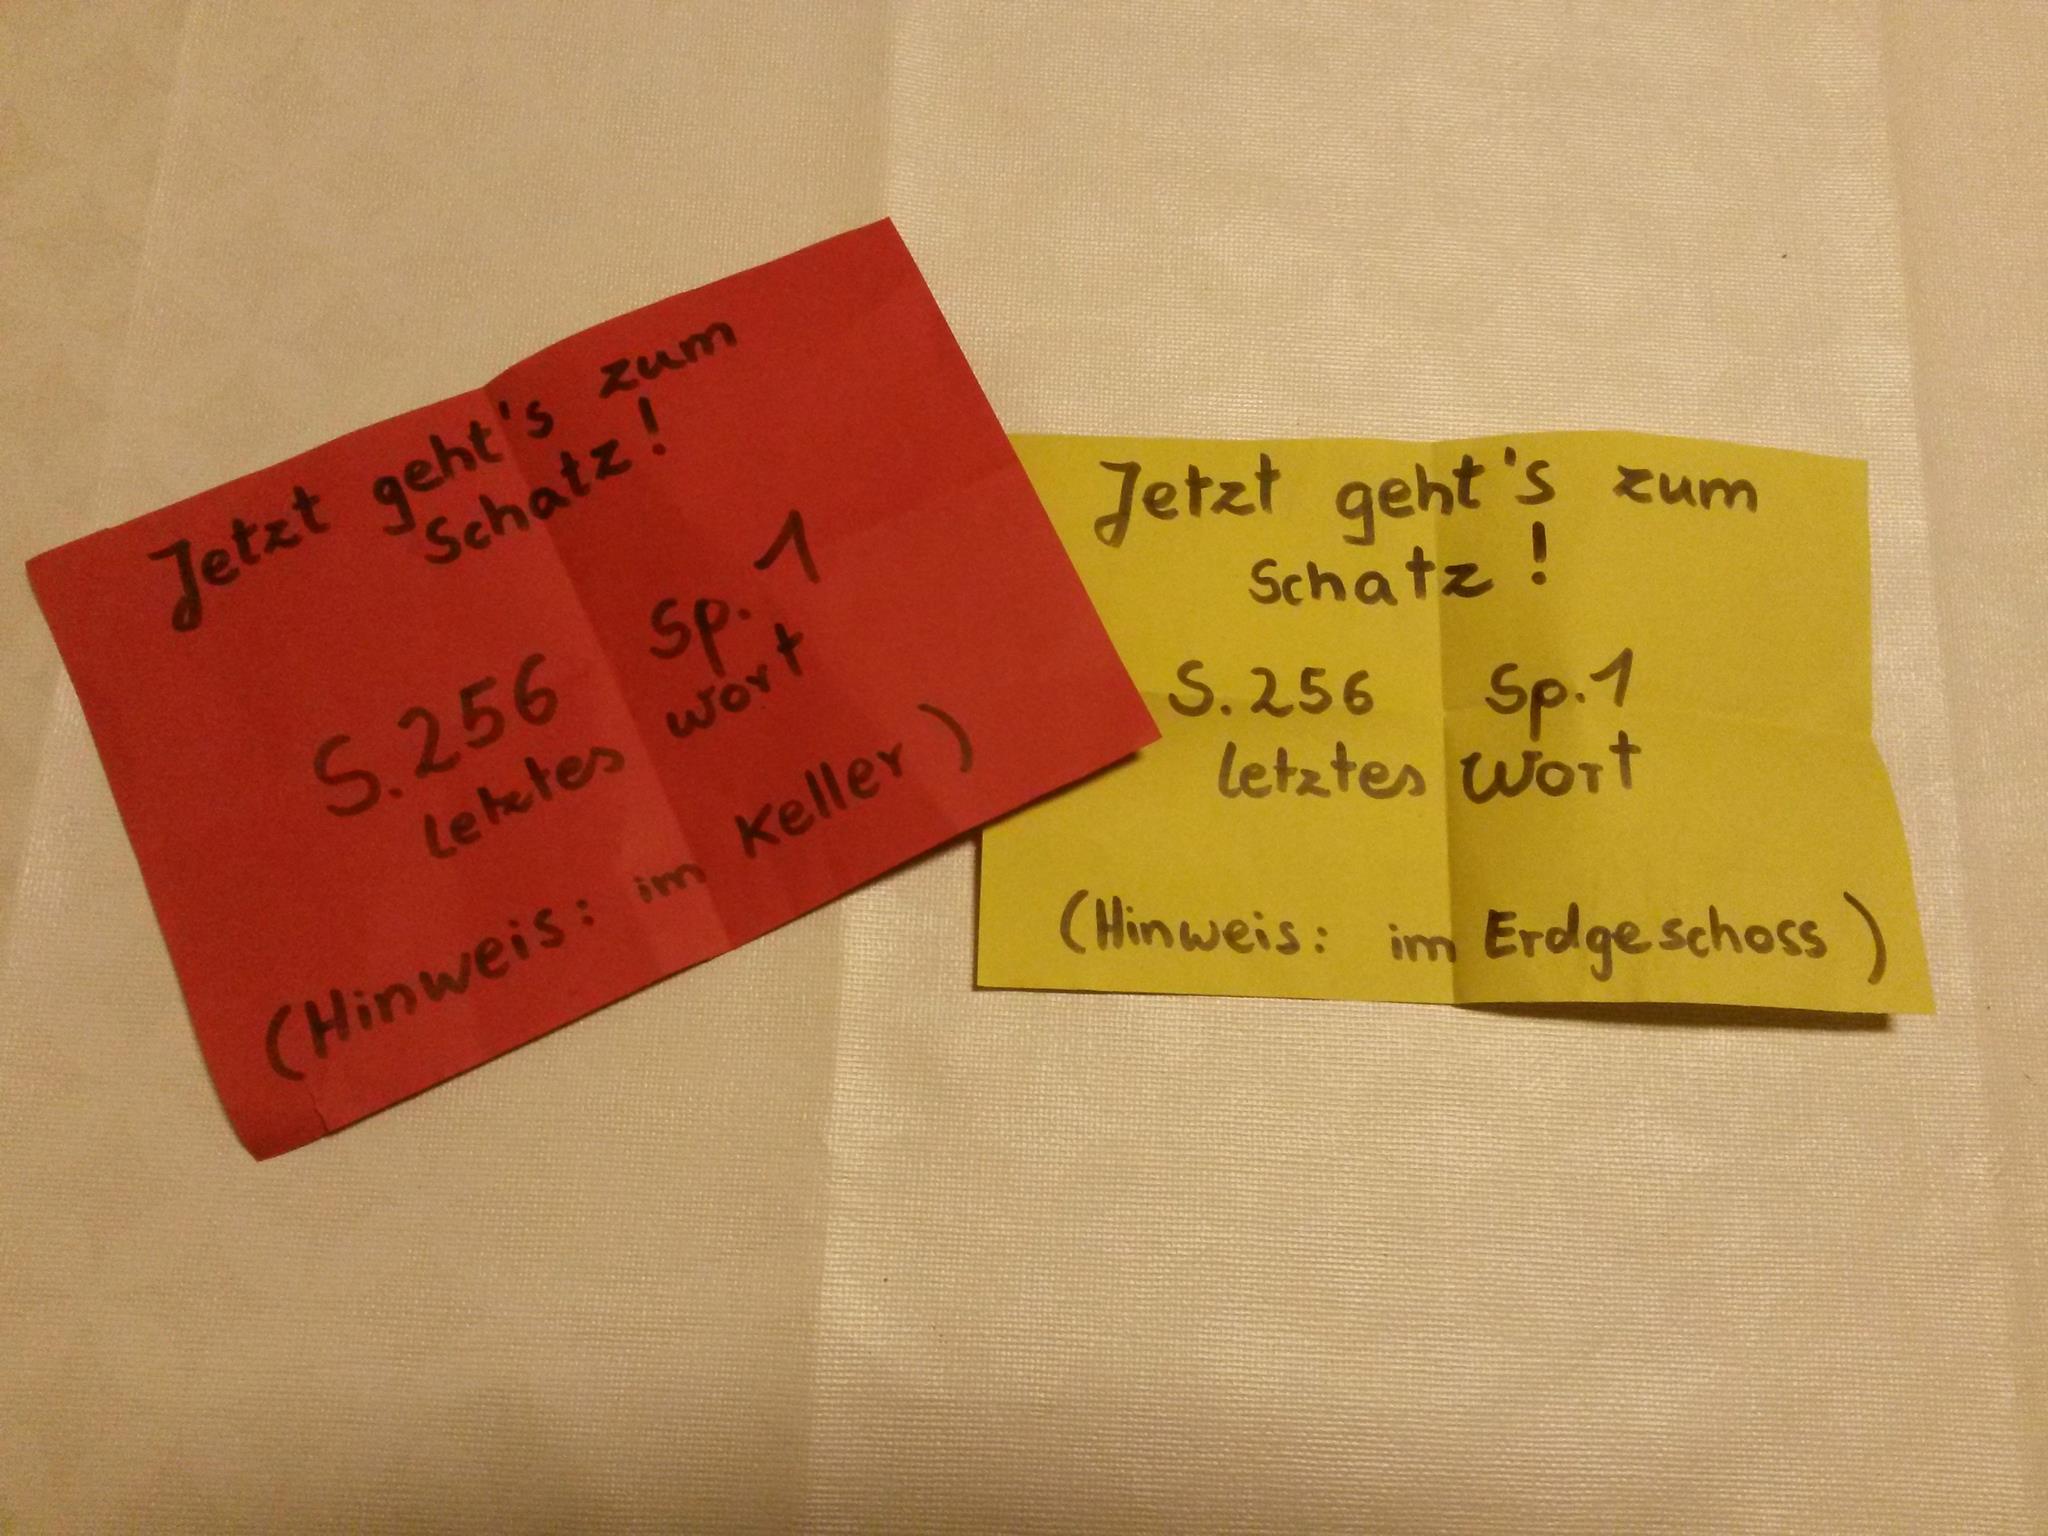 Jetzt geht's zum
Schatz!
S.256 Sp.1
letztes Wort
(Hinweis: im Keller)
Jetzt geht's zum
Schatz!
S.256 Sp.1
letztes Wort
(Hinweis: im Erdgeschoss)